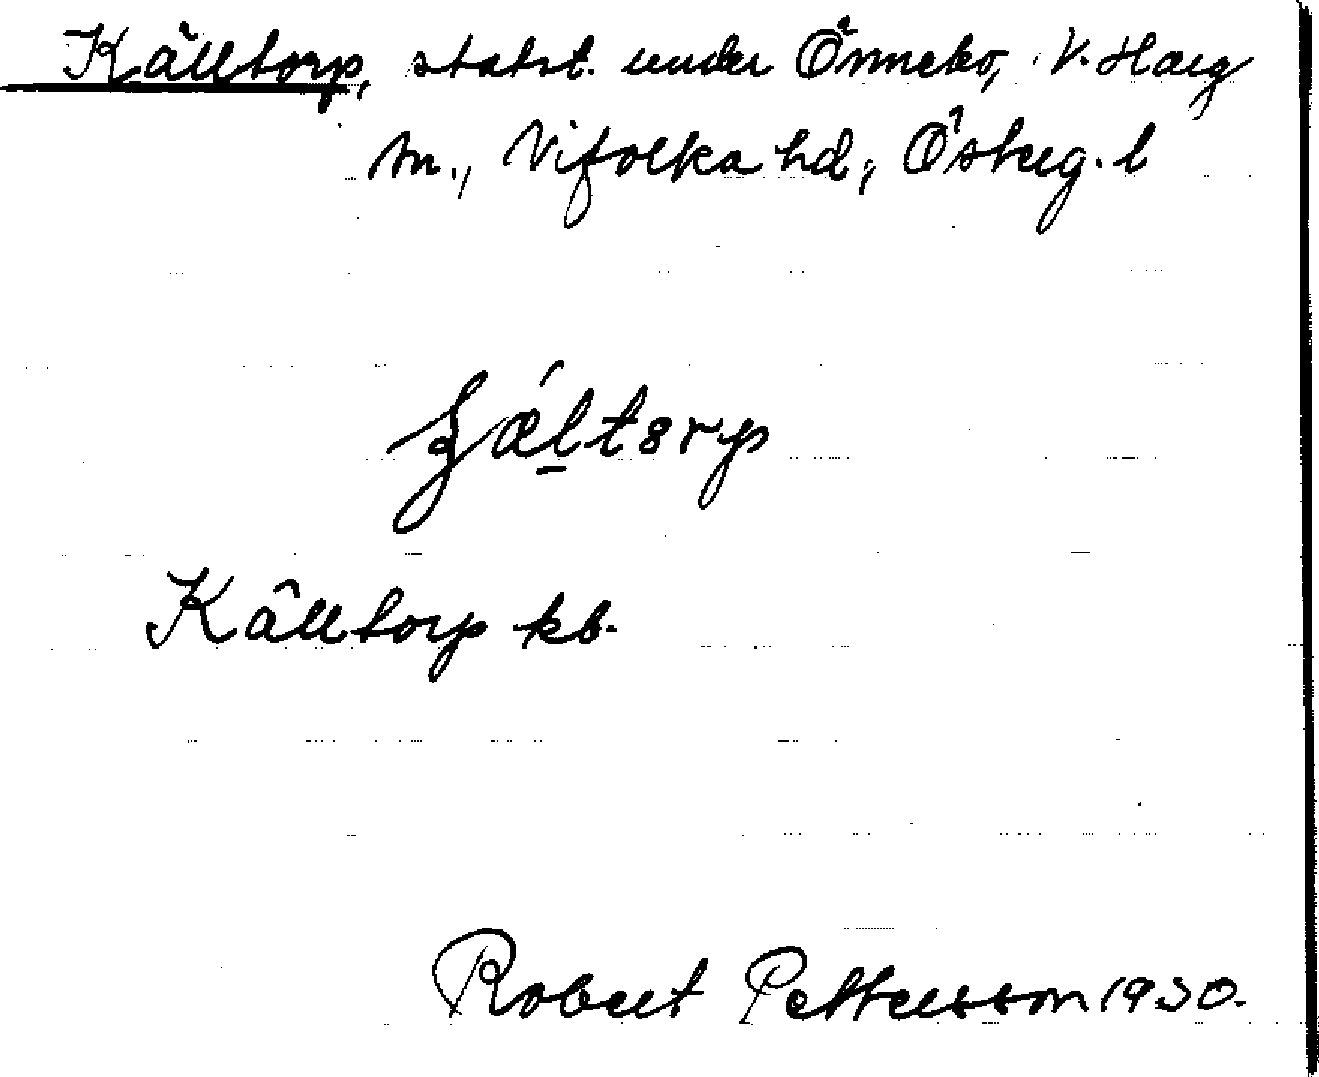 Källtorp, statst. under Önnebo, V. Harg
sn., Vifolka hd, Österg. l
Källtorp kb.
Robert Pettersson 1930.